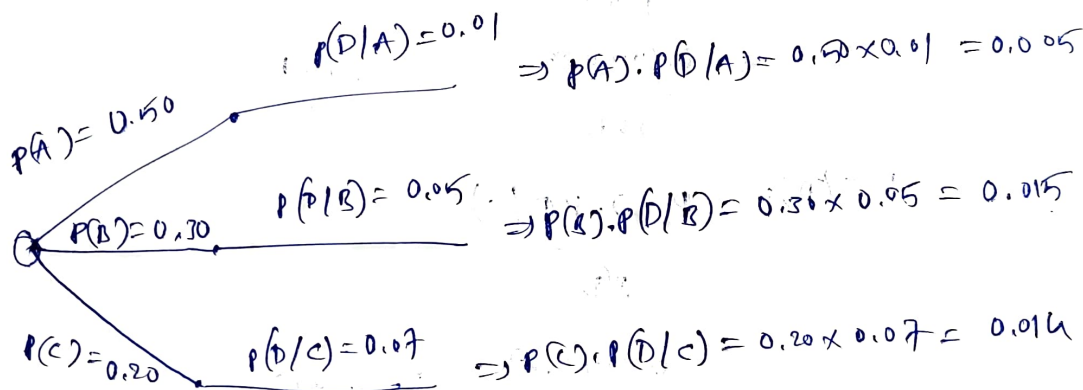 P(D/A) = 0.01
⇒ P(A). P(D/A) = 0.50 × 0.01 = 0.005
P(A) = 0.50
P(D/B) = 0.05
P(B) = 0.30
⇒ P(B). P(D/B) = 0.30 × 0.05 = 0.015
P(C) = 0.20
P(D/C) = 0.07
⇒ P(C). P(D/C) = 0.20 × 0.07 = 0.014